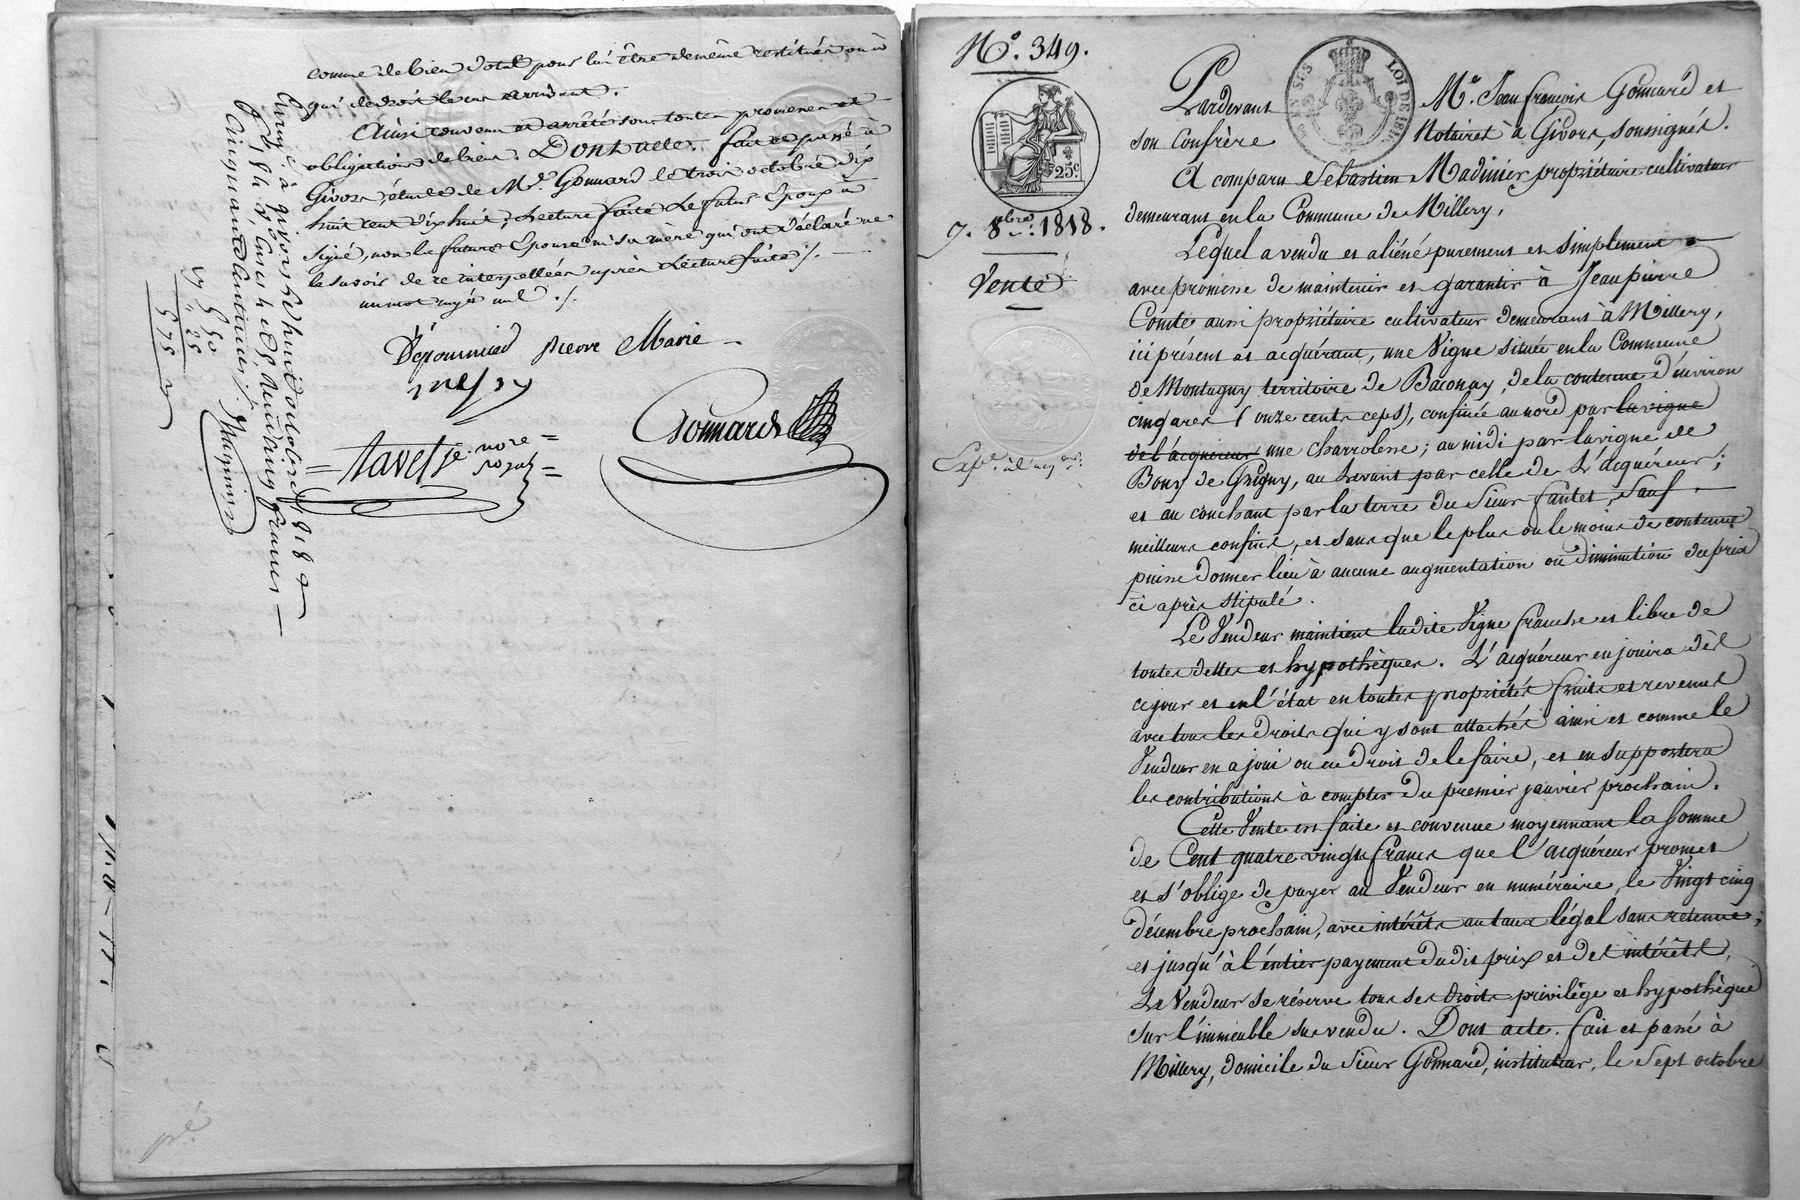 comme de bien dotal pour lui être de même restitués ou à
qui de droit le cas arrivant.
Ainsi convenu et arrêté sous toutes promesses et
obligations de biens. Dont acte. fait et passé à
Givors, étude de Me. Gonnard le trois octobre dix
huit cent dix huit; Lecture faite Le futur Epoux a
signé, non la future Epouse ni sa mère qui ont déclaré ne
le savoir de ce interpellées après Lecture faite ./.
un mot rayé nul ./.
pierre Marie
Gonnard
tavel je. nore
royal
Enrgé à givors le huit octobre 1818
cinquante centimes ./.
5 50
" 25
5 75
N.o 349.
25c
7. 8bre 1818.
Vente
LOI DE 181
Pardevant Me. Jean françois Gonnard et
son Confrère Notaires à Givors, soussignés.
A comparu Sébastien Madinier propriétaire cultivateur
demeurant en la Commune de Millery,
Lequel a vendu et aliéné purement et simplement
avec promesse de maintenir et garantir à Jean pierre
Comte aussi propriétaire cultivateur demeurant à Millery,
ici présent et acquérant, une Vigne située en la Commune
de Montagny territoire de Baconay, de la contenue d'environ
cinq ares (onze cents ceps), confinée au nord par la vigne
de l'acquéreur une charrolerie; au midi par la vigne de
Bony de Grigny, au Levant par celle de L'acquéreur;
et au couchant par la terre du Sieur fantet, Sauf
meilleurs confins, et sans que le plus ou le moins de contenue
puisse donner lieu à aucune augmentation ou diminution du prix
ci après stipulé.
Le Vendeur maintient ladite Vigne franche et libre de
toutes dettes et hypothèques. L'acquéreur en jouira dès
ce jour et en l'état en toutes propriétés fruits et revenus
avec tous les droits qui y sont attachés ainsi et comme le
Vendeur en a joui ou eu droit de le faire, et en supportera
les contributions à compter du premier janvier prochain.
Cette Vente est faite et convenue moyennant la somme
de Cent quatre vingts francs que l'acquéreur promet
et s'oblige de payer au Vendeur en numéraire, le Vingt cinq
décembre prochain, avec intérêts au taux légal sans retenue;
et jusqu'à l'entier payement dudit prix et des intérêts,
Le Vendeur se réserve tous ses droits privilège et hypothèque
sur l'immeuble sus vendu. Dont acte. fait et passé à
Millery, domicile du Sieur Gonnard, instituteur, le Sept octobre